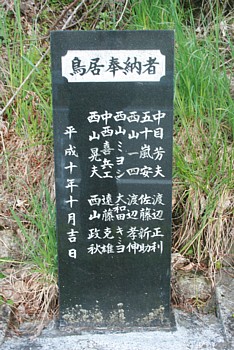 鳥居奉納者
中目芳夫 渡辺正利
五十嵐安 佐藤新助
西山一四 渡辺孝伸
西山ミヨシ 大和田キミヨ
中西喜兵エ 遠藤克雄
西山晃夫 西山政秋
平成十年十月吉日